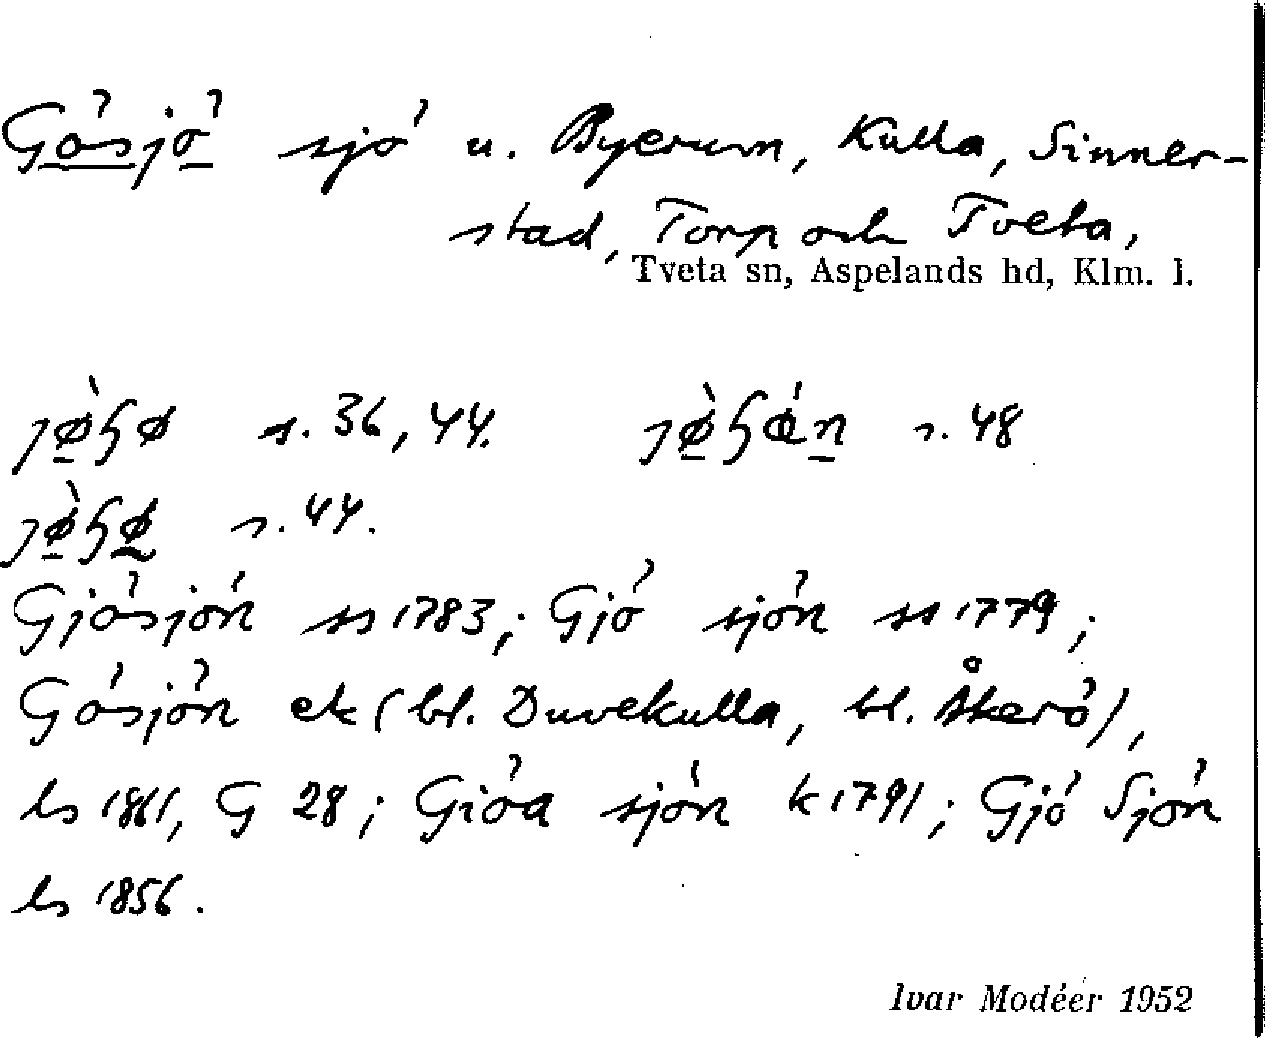 Gösjö sjö u. Byerum, Kulla, Sinner-
stad, Torp och Tveta,
Tveta sn, Aspelands hd, Klm. l.
s. 36, 44. s. 48
s. 44.
Gjösjön ss 1783; Gjö sjön ss 1779;
Gösjön ek (bl. Duvekulla, bl. Åkerö),
ls 1861, G 28; Giöa sjön k 1791; Gjö Sjön
ls 1856.
Ivar Modéer 1952